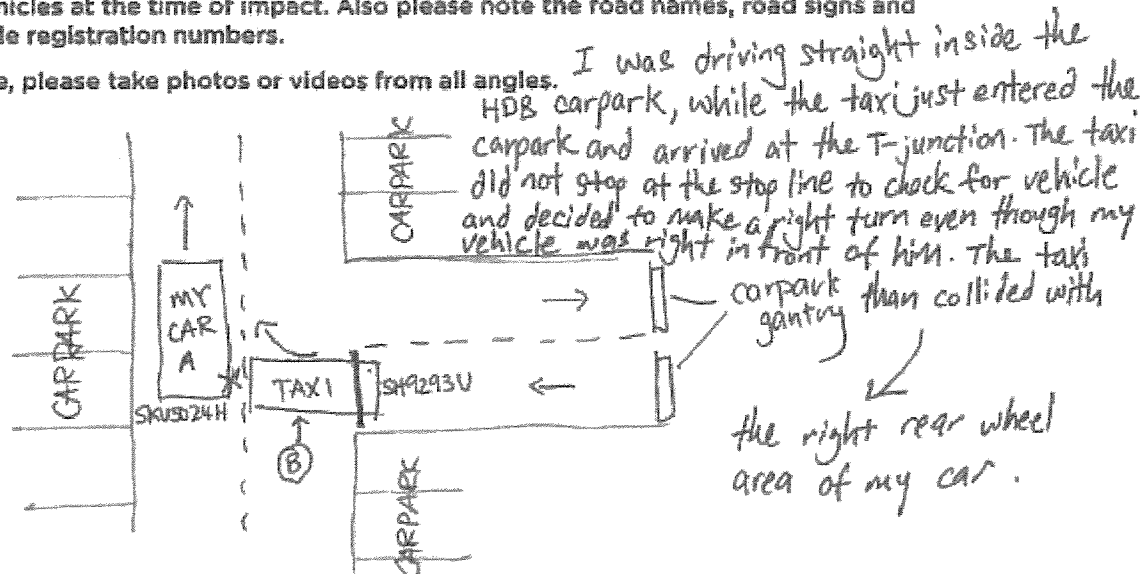 hicles at the time of impact. Also please note the road names, road signs and
le registration numbers.
e, please take photos or videos from all angles.
I was driving straight inside the
HDB carpark, while the taxi just entered the
carpark and arrived at the T-junction. The taxi
did not stop at the stop line to check for vehicle
and decided to make a right turn even though my
vehicle was right in front of him. The taxi
than collided with
the right rear wheel
area of my car.
carpark
gantry
CARPARK
CARPARK
MY
CAR
A
TAXI
SH9293U
B
CARPARK